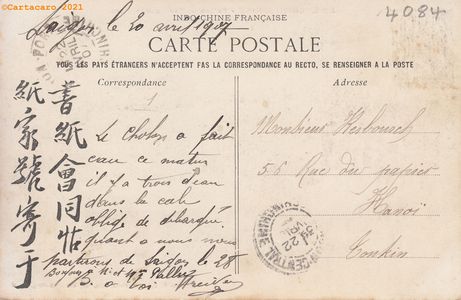 © Cartacaro © 2021
INDO-CHINE FRANÇAISE
4084
Saïgon, le 20 avril 1907
CARTE POSTALE
TOUS LES PAYS ÉTRANGERS N'ACCEPTENT PAS LA CORRESPONDANCE AU RECTO, SE RENSEIGNER A LA POSTE
Correspondance
1
Le Cholon a fait
eau ce matin
il y a trois d'eau
dans la cale
obligé de débarqué
quant a nous nous
partirons de Saïgon le 28
書紙會同帖
紙家號寄于
Adresse
Monsieur
56 Rue du papier
Hanoï
Tonkin